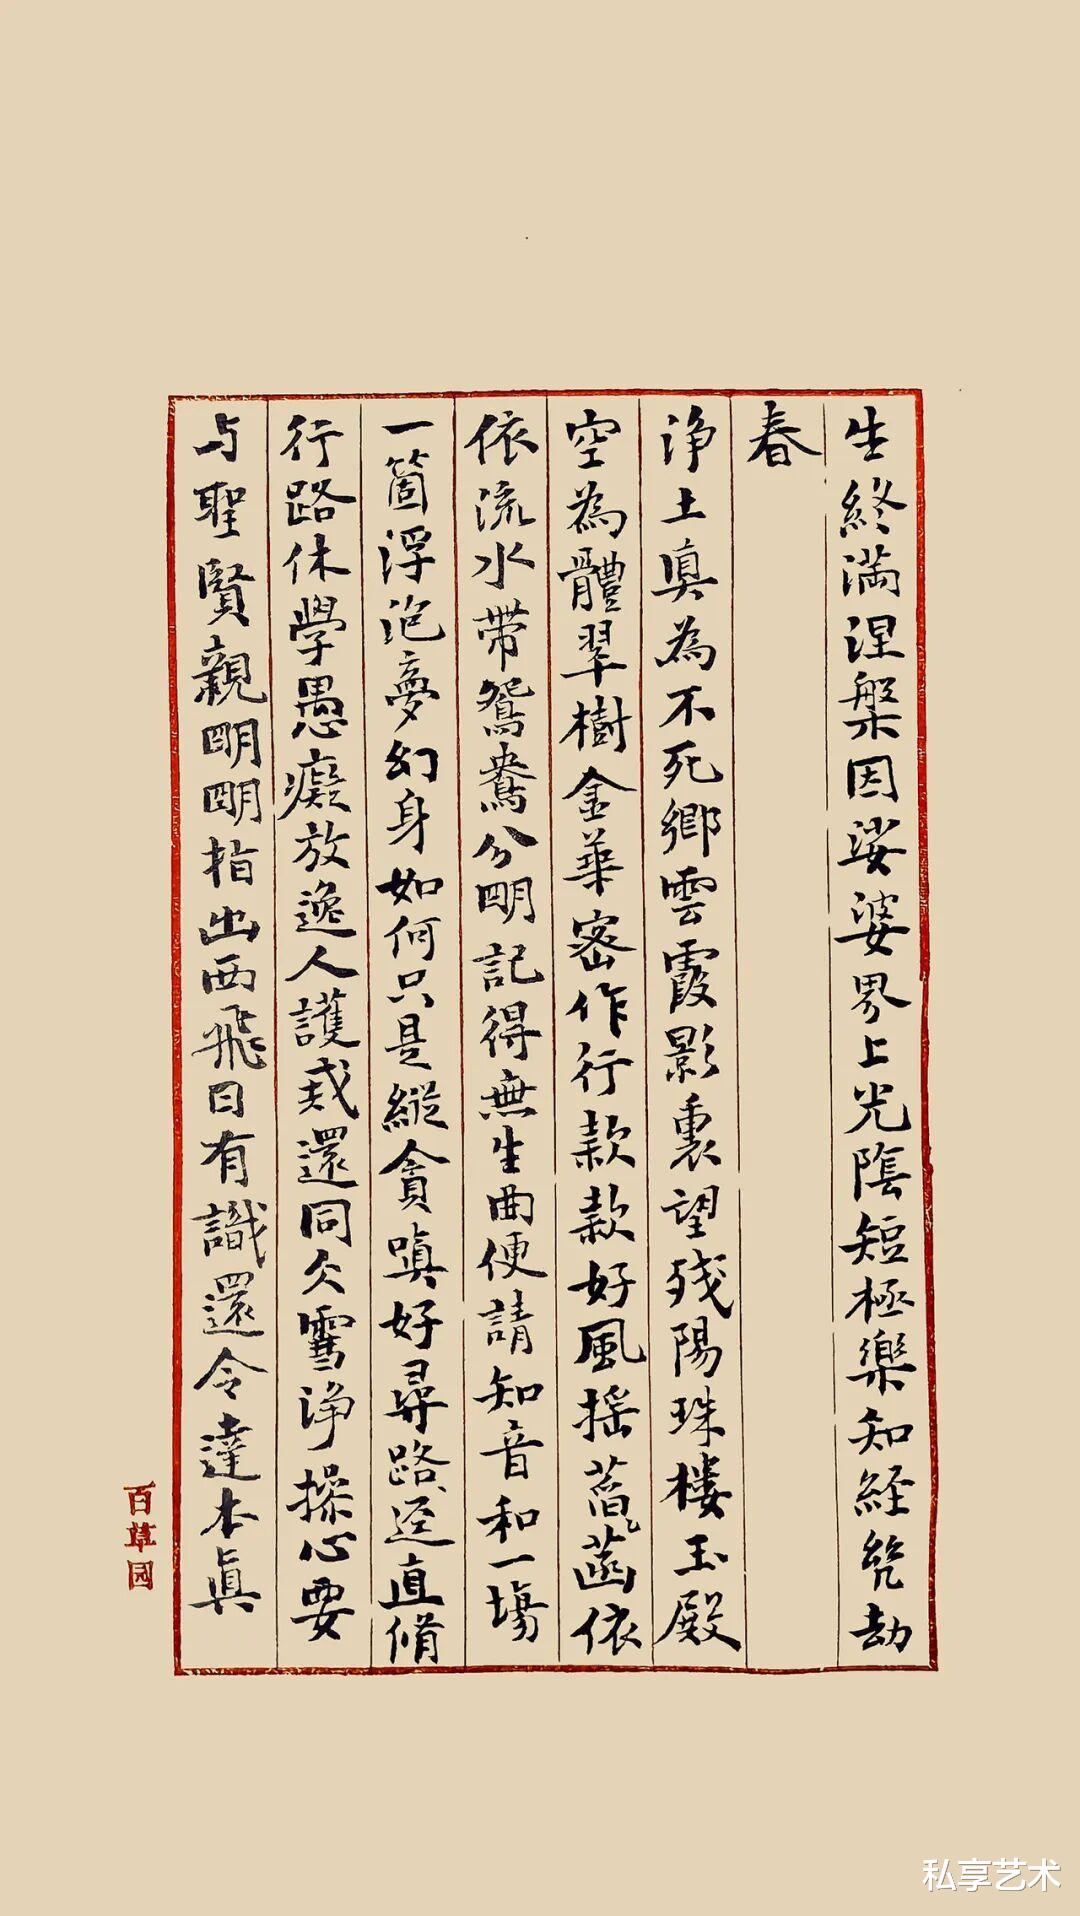 生終滿涅槃因娑婆界上光陰短極樂知經幾劫
春
浄土真為不死鄉雲霞影裏望残陽珠樓玉殿
空為體翠樹金華密作行款款好風摇菡萏依
依流水带鴛鴦分明記得無生曲便請知音和一場
一箇浮泡夢幻身如何只是縱貪嗔好尋路迳直脩
行路休學愚癡放逸人護戒還同久雪浄操心要
与聖賢親明明指出西飛日有識還令達本真
百草园
私享艺术